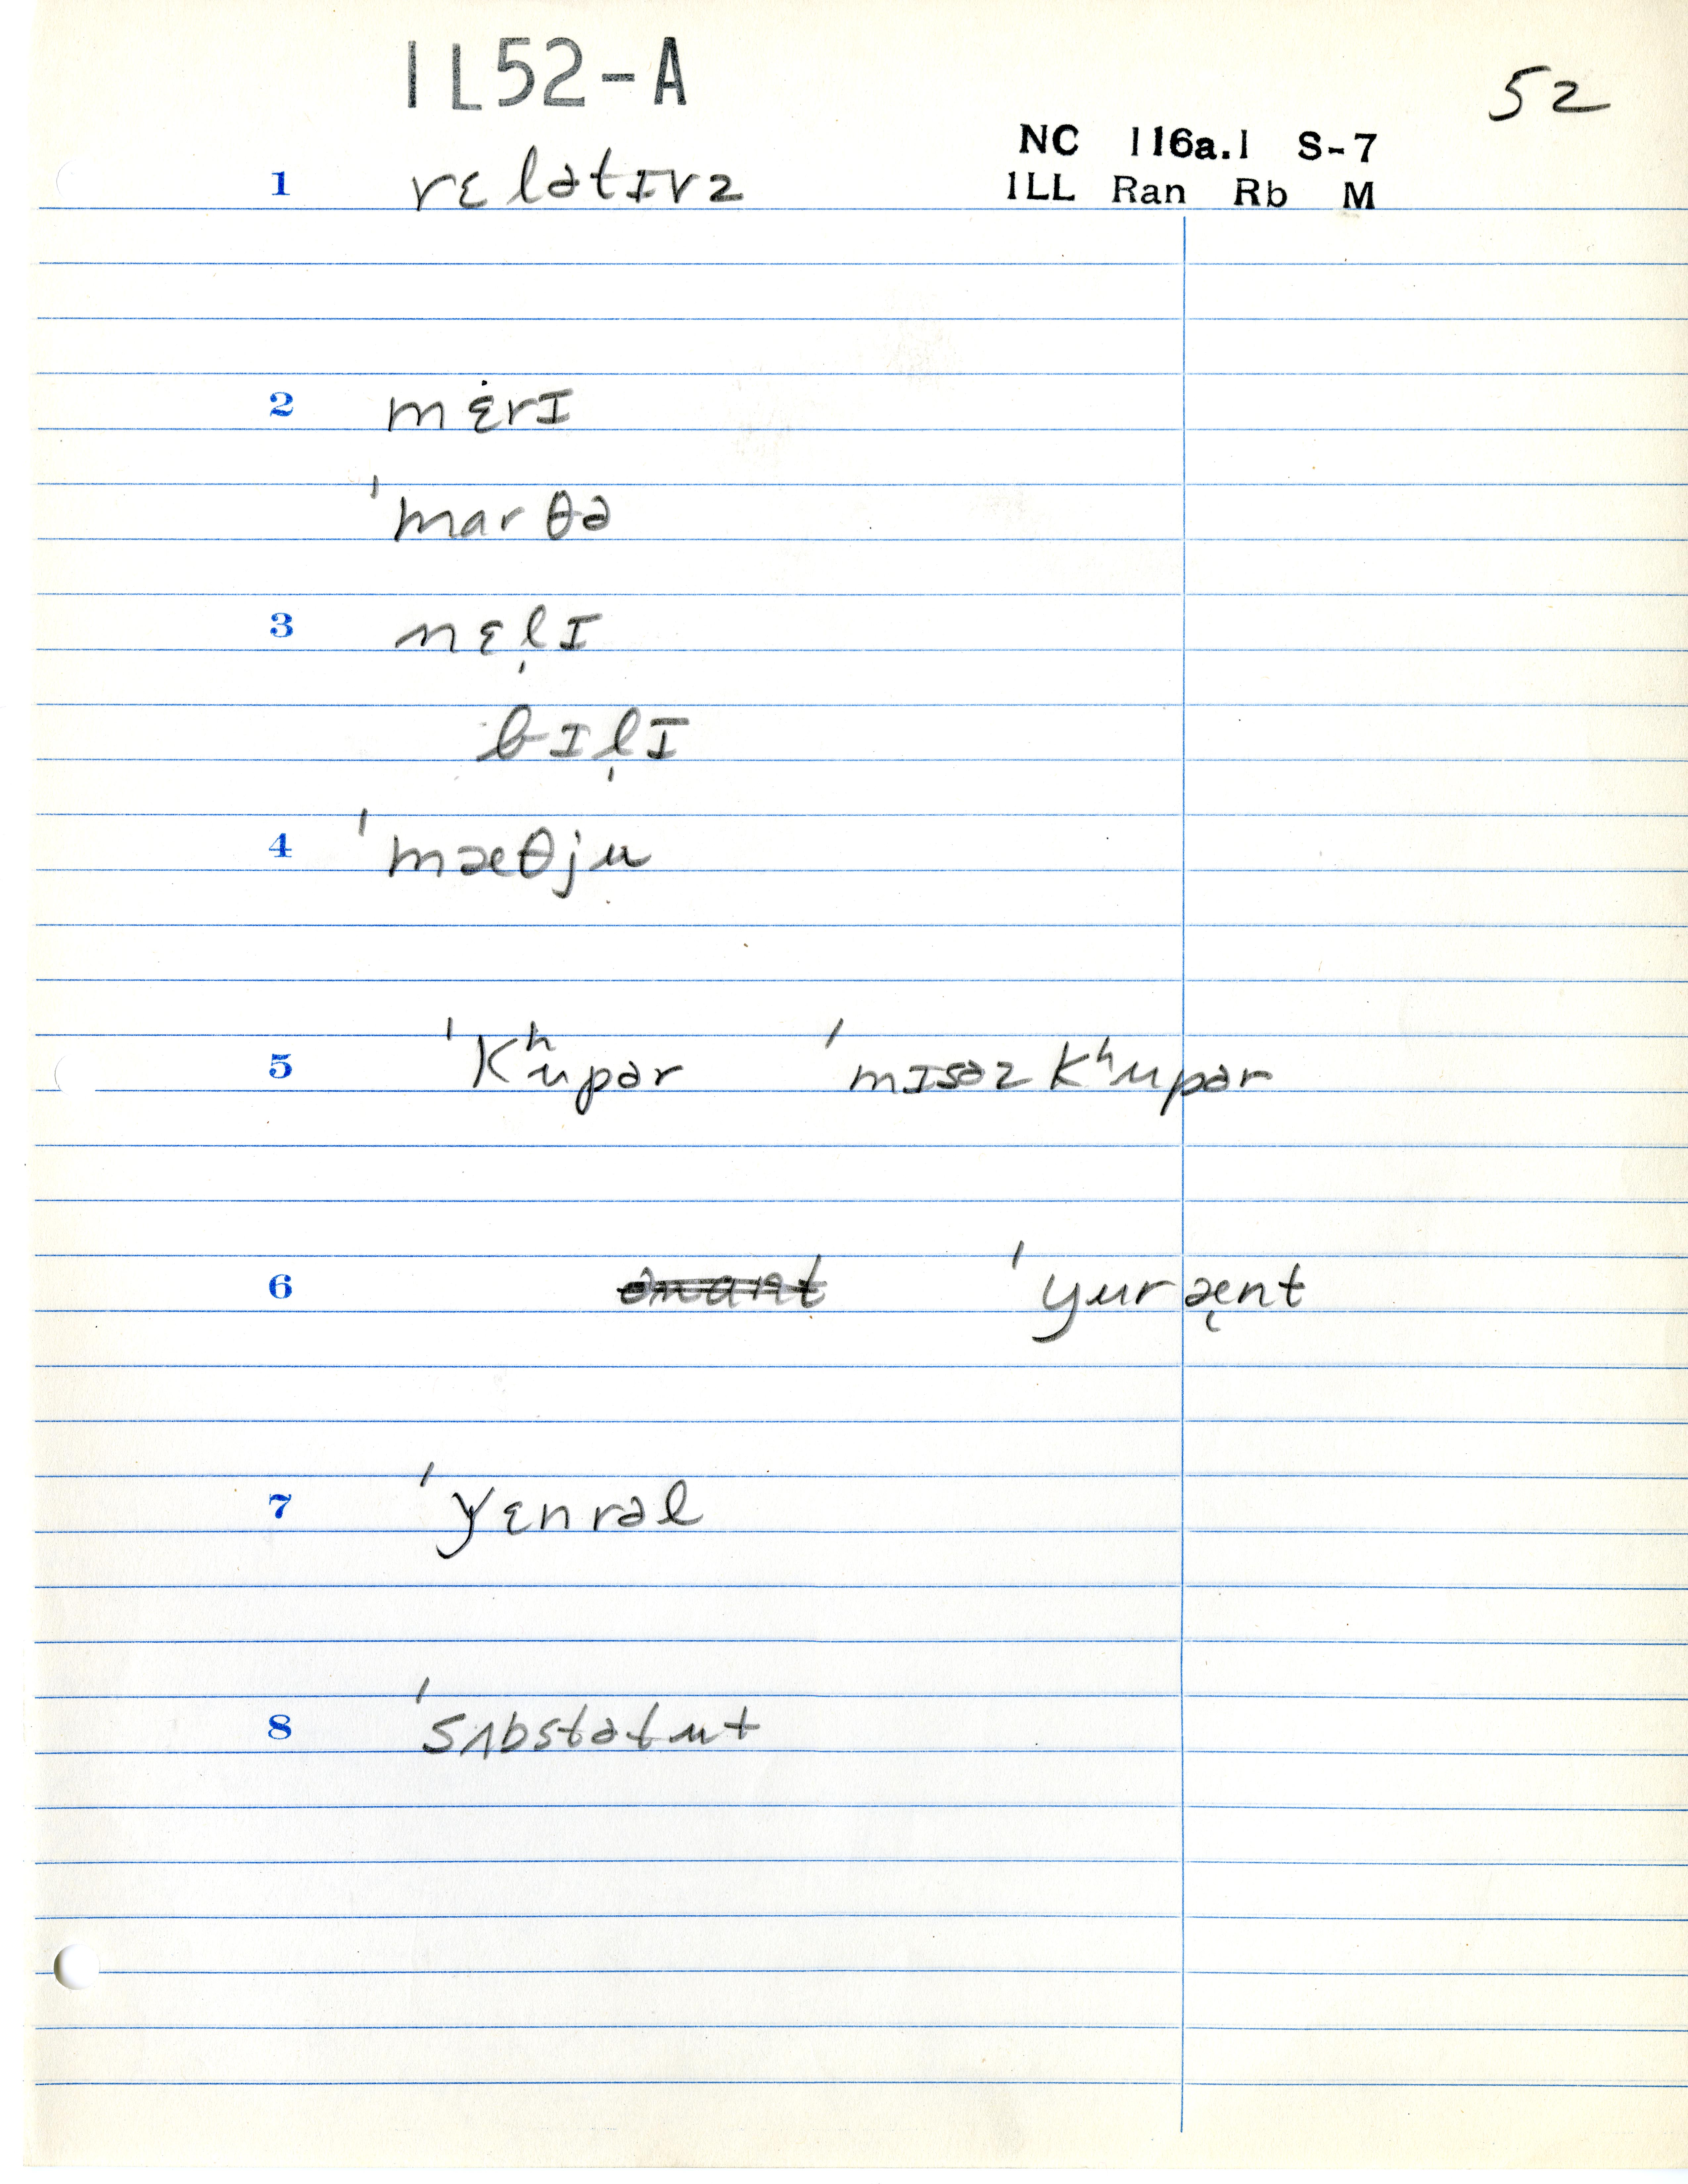 IL52-A
52
NC 116a.1 S-7
1 rɛlətɪvz ILL Ran Rb M
2 mɛ̇rɪ
ˈmarθə
3 nɛl̩ɪ
bɪl̩ɪ
4 ˈmæθju
5 ˈKʰupər ˈmɪsəzKʰupər
6 ˈyuræ̨nt
7 ˈyɛnrəl
8 ˈsʌbstətut